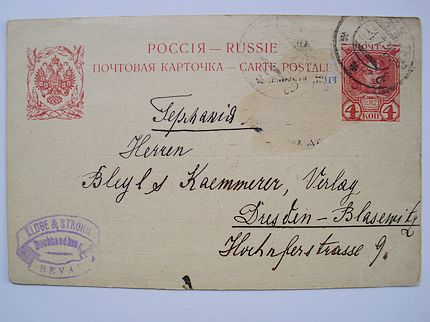 РОССІЯ — RUSSIE
ПОЧТОВАЯ КАРТОЧКА — CARTE POSTALE
ПОЧТА
4 4
КОП
Германія
Herren
Bleyl & Kaemmerer, Verlag
Dresden-Blasewitz
Hochuferstrasse 9.
KLUGE & STRÖHM
Buchhandlung
REVAL